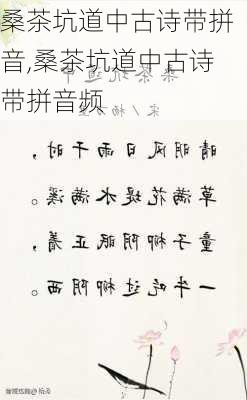 桑茶坑道中古诗带拼
音,桑茶坑道中古诗
带拼音频
宋 / 杨
晴明风日雨干时，
草满花堤水满溪。
童子柳阴眠正着，
一牛吃过柳阴西。